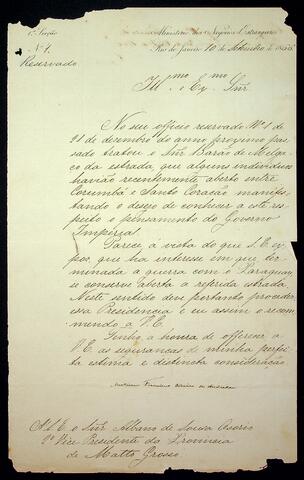 1ª Secção
Ministerio dos Negocios Estrangeiros
N. 1.
Rio de Janeiro 10 de Setembro de
Reservado
Ill.mo e Ex.mo Sñr
No seu officio reservado Nº 1 de
21 de dezembro do anno proximo pas
sado tratou o Sñr Barão de Melga
ço da estrada que alguns individuos
havião recentemente aberto entre
Corumbá e Santo Coração manifes
tando o desejo de conhecer a este res
peito o pensamento do Governo
Imperial.
Parece á vista do que S. Ex.
poz, que ha interesse em que ter
minada a guerra com o Paraguay
se conserve aberta a referida estrada.
Neste sentido deve portanto proceder
essa Presidencia e eu assim o recom
mendo a V. E.
Tenho a honra de offerecer a
V. E. as seguranças de minha perfei
ta estima e distincta consideração
Al E. o Sñr Albano de Souza Osorio
Vice Presidente da Provincia
de Matto Grosso